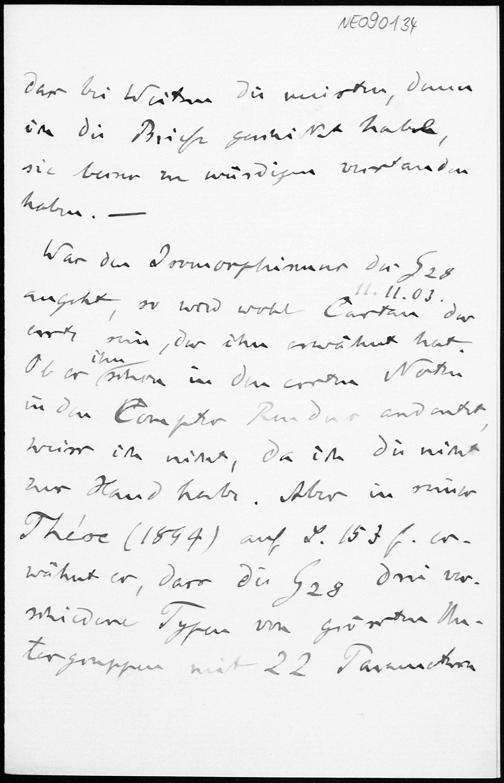 NE090134
dass bei Weitem die meisten, denen
ich die Briefe geschickt habe,
sie besser zu würdigen verstanden
haben. —
Was den Isomorphismus der G28
11.11.03.
angeht, so wird wohl Cartan der
erste sein, der ihn erwähnt hat.
Ob er ihn schon in den ersten Noten
in den Comptes Rendus andeutet,
weiss ich nicht, da ich die nicht
zur Hand habe. Aber in seiner
Thése (1894) auf S. 153 f. er-
wähnt er, dass die G28 drei ver-
schiedene Typen von grössten Un-
tergruppen mit 22 Parametern